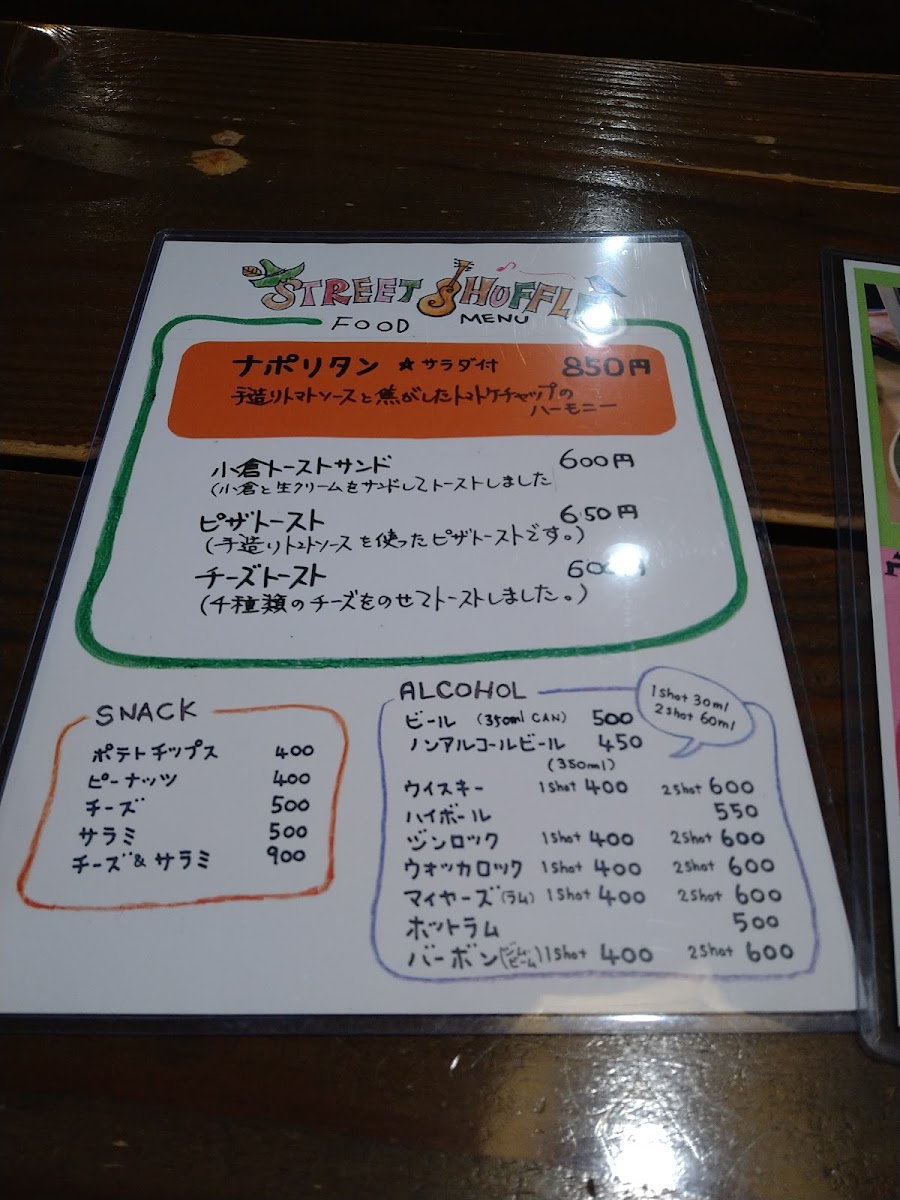 STREET SHUFFLE
FOOD MENU
ナポリタン ★サラダ付 850円
手造りトマトソースと焦がしたトマトケチャップの
ハーモニー
小倉トーストサンド 600円
(小倉と生クリームをサンドしてトーストしました
ピザトースト 650円
(手造りトマトソースを使ったピザトーストです。)
チーズトースト 600円
(4種類のチーズをのせてトーストしました。)
SNACK
ポテトチップス 400
ピーナッツ 400
チーズ 500
サラミ 500
チーズ&サラミ 900
ALCOHOL
1shot 30ml
2shot 60ml
ビール (350ml CAN) 500
ノンアルコールビール 450
(350ml)
ウイスキー 1shot 400 2shot 600
ハイボール 550
ジンロック 1shot 400 2shot 600
ウォッカロック 1shot 400 2shot 600
マイヤーズ(ラム) 1shot 400 2shot 600
ホットラム 500
バーボン(ジム・ビーム) 1shot 400 2shot 600